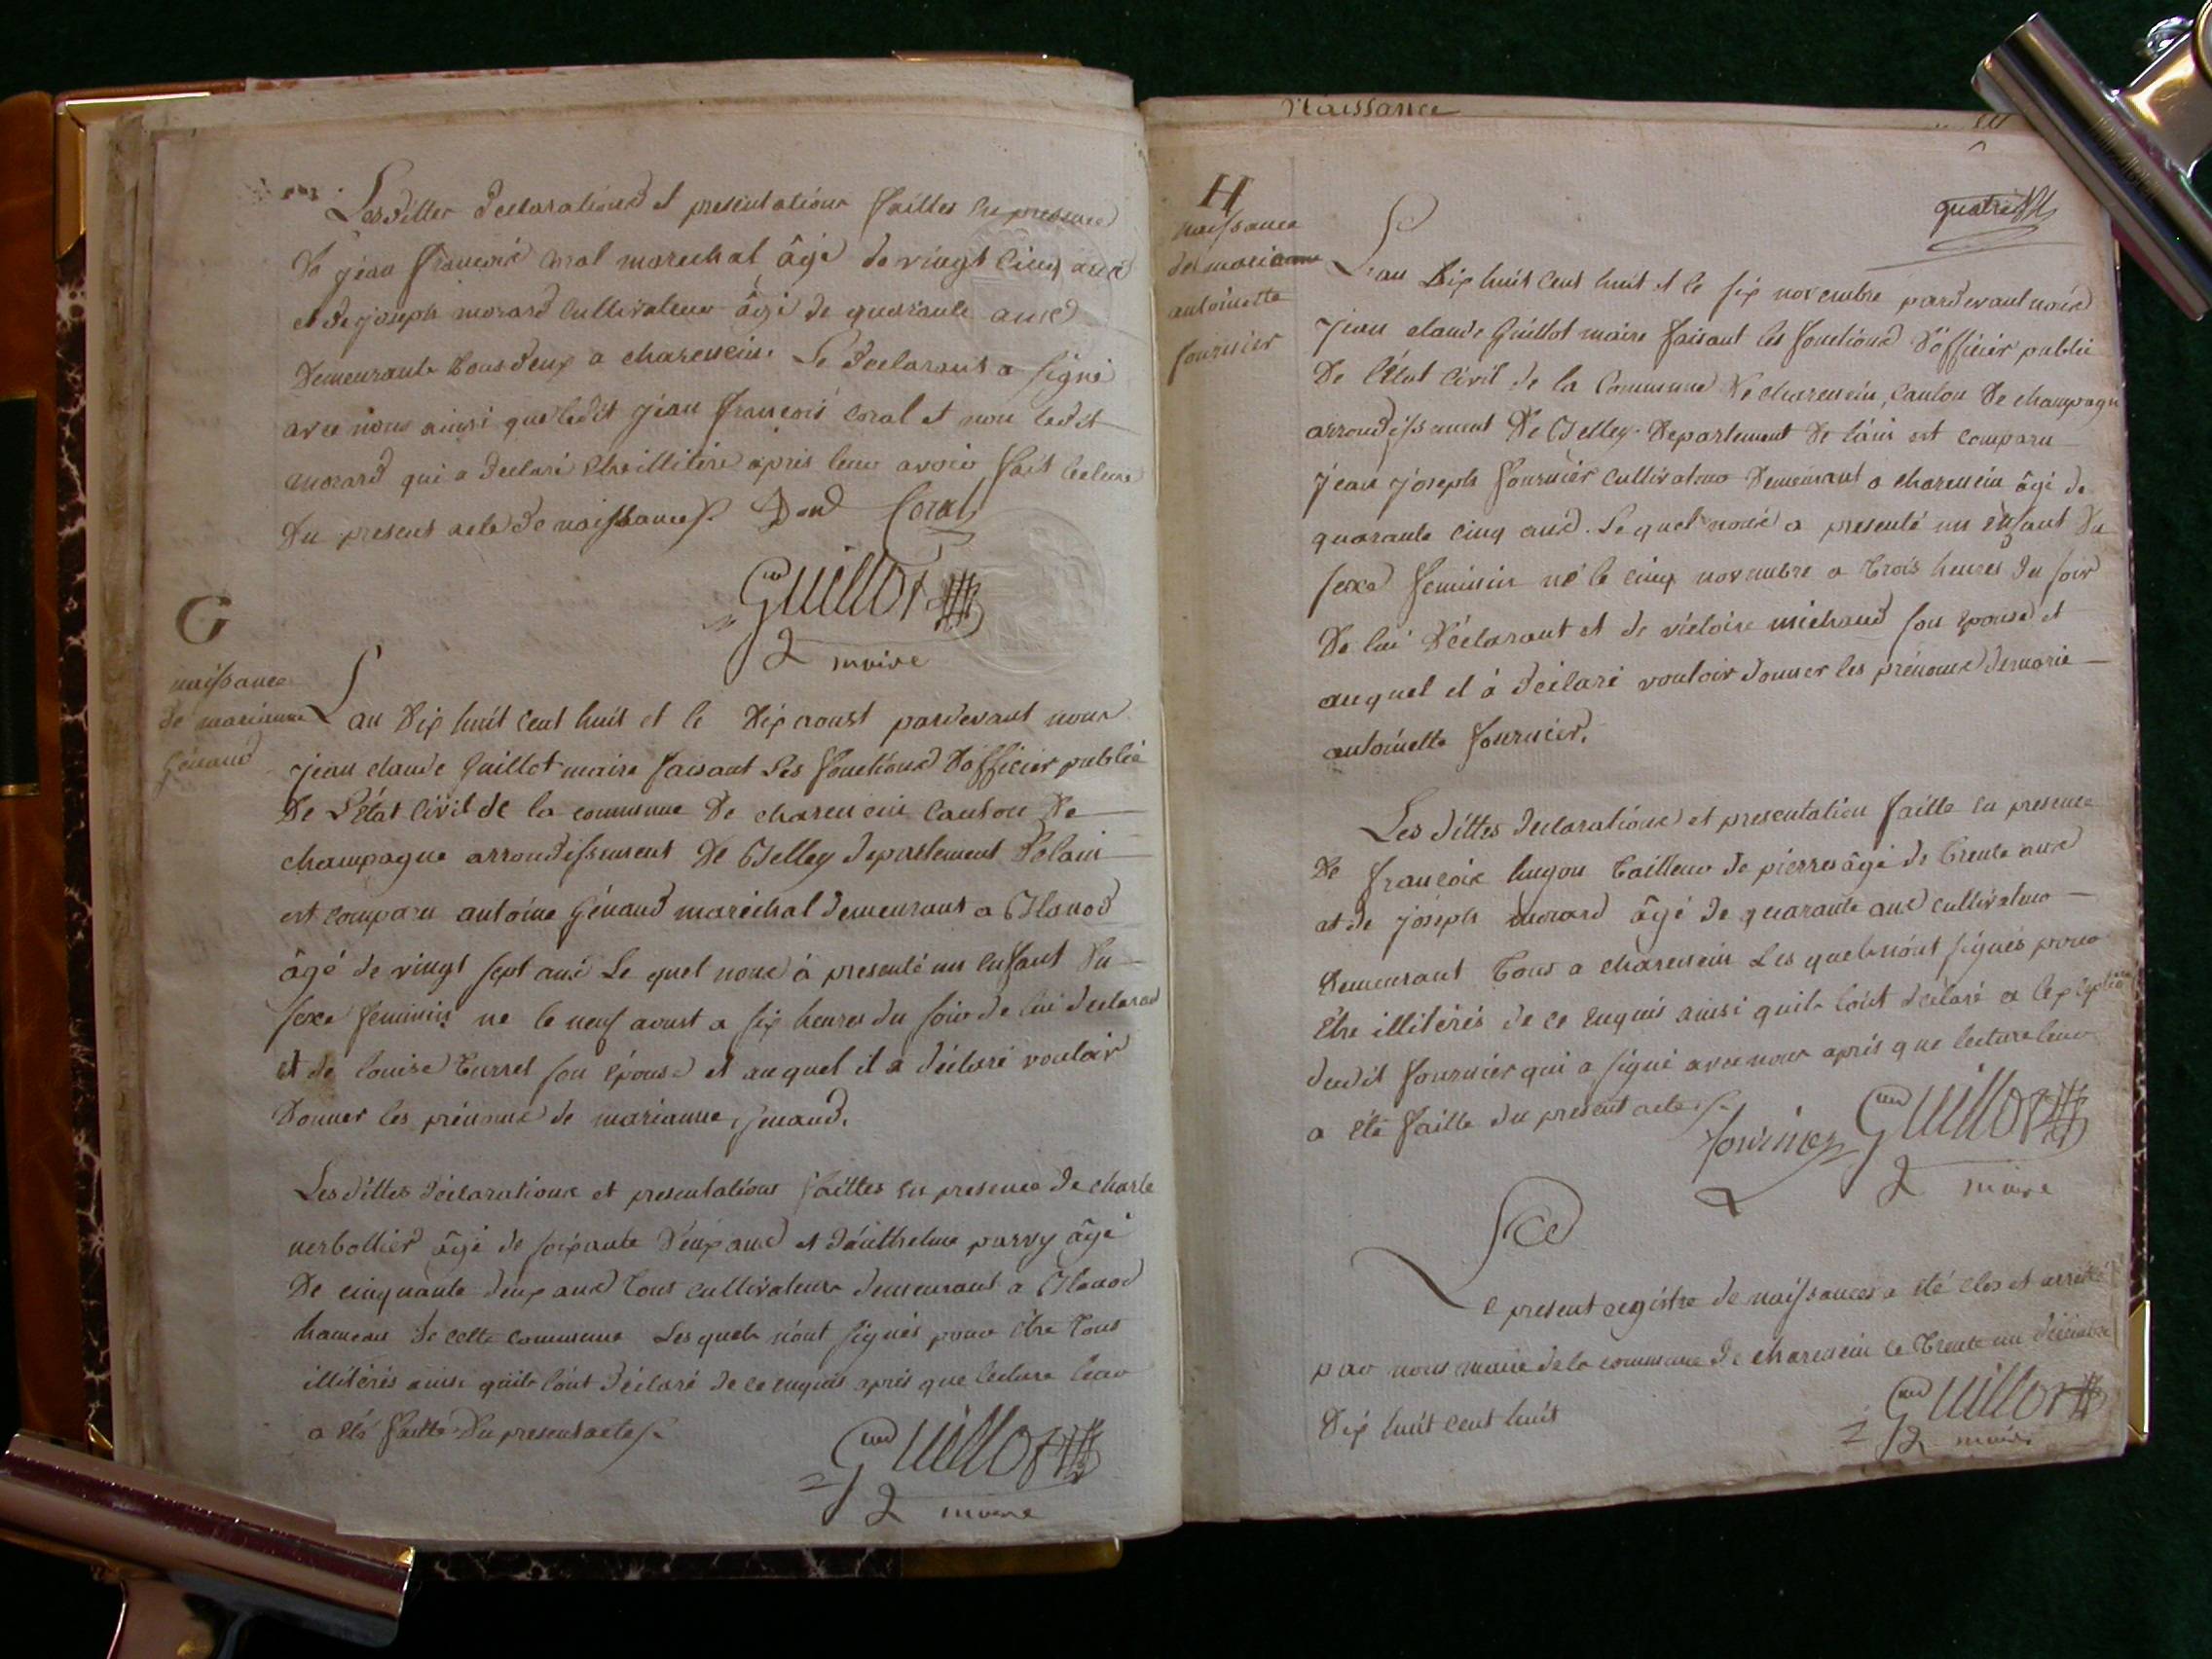 Lesdittes declarations et presentations faittes en presence
De jean françois coral marechal âgé de vingt cinq ans
et de joseph morard cultivateur âgé de quarante ans
Demeurants tous deux a charencin. Le declarant a signé
avec nous ainsi que ledit jean françois coral et non ledit
morard qui a declaré etre illitéré après leur avoir fait lecture
Du present acte de naissance
Coral
Guillot
maire
G
naissance
de marianne
Génand
Lan Dix huit cent huit et le Dix aoust pardevant nous
jean claude Guillot maire faisant les fonctions D'officier public
De L'état Civil de la commune De charencin canton De
champagne arrondissement De Belley departement De lain
est comparu antoine Génand maréchal demeurant a Blanod
âgé de vingt sept ans Le quel nous à presenté un enfant Du
sexe feminin né le neuf aoust a six heures du soir de lui declarant
et de louise turrel son épouse et auquel il a déclaré vouloir
Donner les prénoms de marianne Genand.
Les dittes déclarations et presentations faittes en presence de charle
âgé de soixante Deux ans et D'anthelme parvy âgé
De cinquante deux ans tous cultivateurs demeurant a Blanod
hameau de cette commune Lesquels n'ont signés pour être tous
illitérés ainsi quils l'ont déclaré de ce enquis après que lecture leur
a été faitte Du present acte
Guillot
maire
Naissance
H
naissance
de marianne
antoinette
fournier
Lan Dix huit cent huit et le six novembre pardevant nous
jean claude Guillot maire faisant les fonctions D'officier public
De l'état Civil de la Commune De charencin, canton De champagne
arrondissement De Belley Departement De láin est comparu
jean joseph fournier cultivateur Demeurant a charencin âgé de
quarante cinq ans. Le quel nous a presenté un enfant Du
sexe feminin né le cinq novembre a trois heures du soir
De lui Déclarant et de victoire michaud son épouse et
auquel il à déclaré vouloir donner les prénoms de marie
antoinette fournier.
Les dittes declarations et presentation faitte en presence
De françois hugon tailleur de pierres âgé de trente ans
et de joseph morard âgé de quarante ans cultivateur
Demeurant tous a charencin Les quels n'ont signés pour
être illitérés de ce enquis ainsi quils l'ont déclaré a l'exception
dudit fournier qui a signé avec nous après que lecture leur
a été faitte du present acte
fournier Guillot
maire
Le present registre de naissances a été clos et arrêté
par nous maire de la commune de charencin le trente un décembre
Dix huit cent huit
Guillot
maire